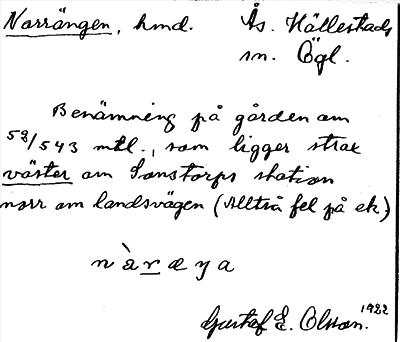 Norrängen, hmd. Ås. Hällestads
sn. Ögl.
Benämning på gården om
58/543 mtl., som ligger strax
väster om Sonstorps station
norr om landsvägen (Alltså fel på ek.)
n à r æ ŋ a
Gustaf E. Olsson. 1922